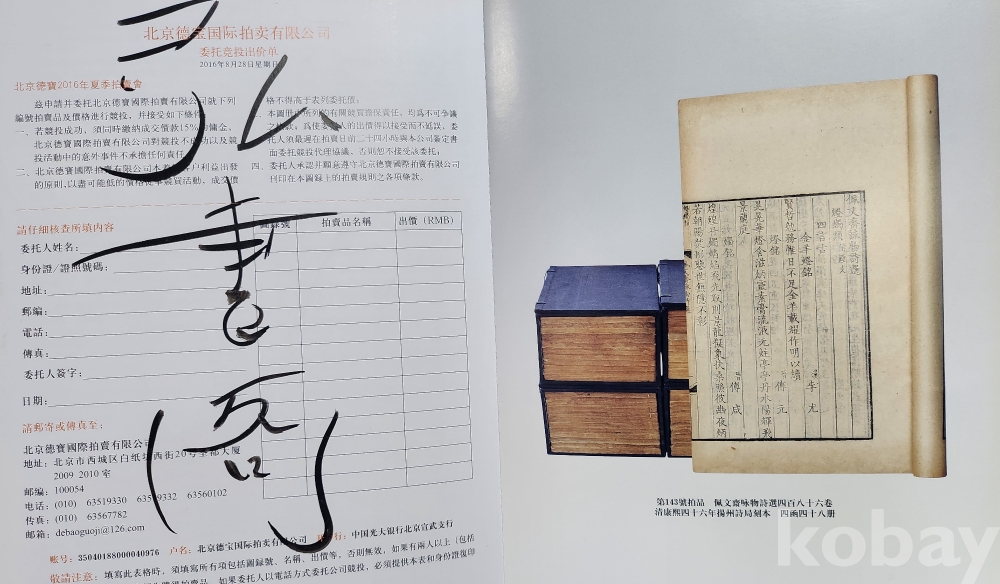 北京德宝国际拍卖有限公司
委托竞投出价单
2016年8月28日星期日
北京德寶2016年夏季拍賣會
茲申請并委托北京德寶國際拍賣有限公司就下列
編號拍賣品及價格進行競投，并接受如下條件：
一、若競投成功，須同時繳納成交價款15%的傭金。
北京德寶國際拍賣有限公司對競投不成功以及競
投活動中的意外事件不承擔任何責任
二、北京德寶國際拍賣有限公司本着
户利益出發
的原則，以盡可能低的價格從事競買活動，成交價
格不得高于表列委托價；
三、本圖
所列的有關競買擔保責任，均爲不可爭議
之條款，爲使委托人的出價得以接受而不延誤，委
托人須最遲在拍賣日前二十四小時與本公司簽定書
面委托競投代理協議，否則恕不接受該委托；
四、委托人承認并願意遵守北京德寶國際拍賣有限公司
刊印在本圖録上的拍賣規則之各項條款。
請仔細核查所填内容
委托人姓名：
身份證/證照號碼：
地址：
郵編：
電話：
傳真：
委托人簽字：
日期：
圖録號 拍賣品名稱 出價（RMB）
請郵寄或傳真至：
北京德寶國際拍賣有限公司
地址：北京市西城区白纸坊西街20号
大厦
2009-2010室
邮编：100054
电话：(010) 63519330 63519332 63560102
传真：(010) 63567782
邮箱：debaoguoji@126.com
账号：35040188000040976 户名：北京德宝国际拍卖有限公司
行：中国光大银行北京宣武支行
敬請注意：填寫此表格時，須填寫所有項包括圖録號、名稱、出價等，否則無效，如果有兩人以上（包括
得拍賣品，如果委托人以電話方式委托公司競投，必須提供本表和身份證復印
佩文齋詠物詩選
四言古
金羊燈銘
漢 李尤
賢哲勉務惟日不足金羊載燿作明以續
燈銘
晉 傅元
晃晃華燈含滋炳靈素膏流液元炷亭亭丹水陽輝飛
景蘭庭
燭銘
晉 傅咸
煌煌丹燭焰焰飛光取則景龍擬象扶桑照彼幽夜炳
若朝陽焚形鑒世無隱不彰
第143號拍品 佩文齋咏物詩選四百八十六卷
清康熙四十六年揚州詩局刻本 四函四十八册
kobay